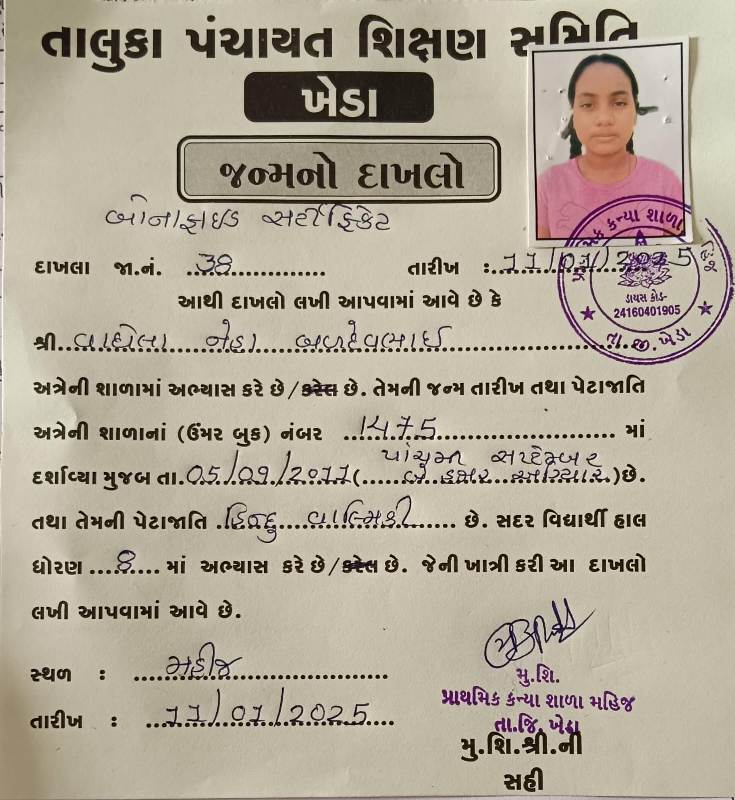 તાલુકા પંચાયત શિક્ષણ સમિતિ
ખેડા
જન્મનો દાખલો
બોનાફાઇડ સર્ટીફિકેટ
દાખલા જા.નં. ...38................ તારીખ :..11/01/2025
આથી દાખલો લખી આપવામાં આવે છે કે
શ્રી..વાઘેલા...નેહા...બળદેવભાઈ..............................
અત્રેની શાળામાં અભ્યાસ કરે છે/કરેલ છે. તેમની જન્મ તારીખ તથા પેટાજાતિ
અત્રેની શાળાનાં (ઉંમર બુક) નંબર ...1475.......................... માં
દર્શાવ્યા મુજબ તા.05/09/2011(.....પાંચમી સપ્ટેમ્બર બે હજાર અગિયાર.)છે.
તથા તેમની પેટાજાતિ .હિન્દુ.....વાલ્મિકી....... છે. સદર વિદ્યાર્થી હાલ
ધોરણ ....8.... માં અભ્યાસ કરે છે/કરેલ છે. જેની ખાત્રી કરી આ દાખલો
લખી આપવામાં આવે છે.
સ્થળ : .....મહીજ..........................
તારીખ : ...11/01/2025....
ડાયસ કોડ-
24160401905
તા.જી.ખેડા
મુ.શિ.
પ્રાથમિક કન્યા શાળા મહિજ
તા.જિ. ખેડા
મુ.શિ.શ્રી.ની
સહી